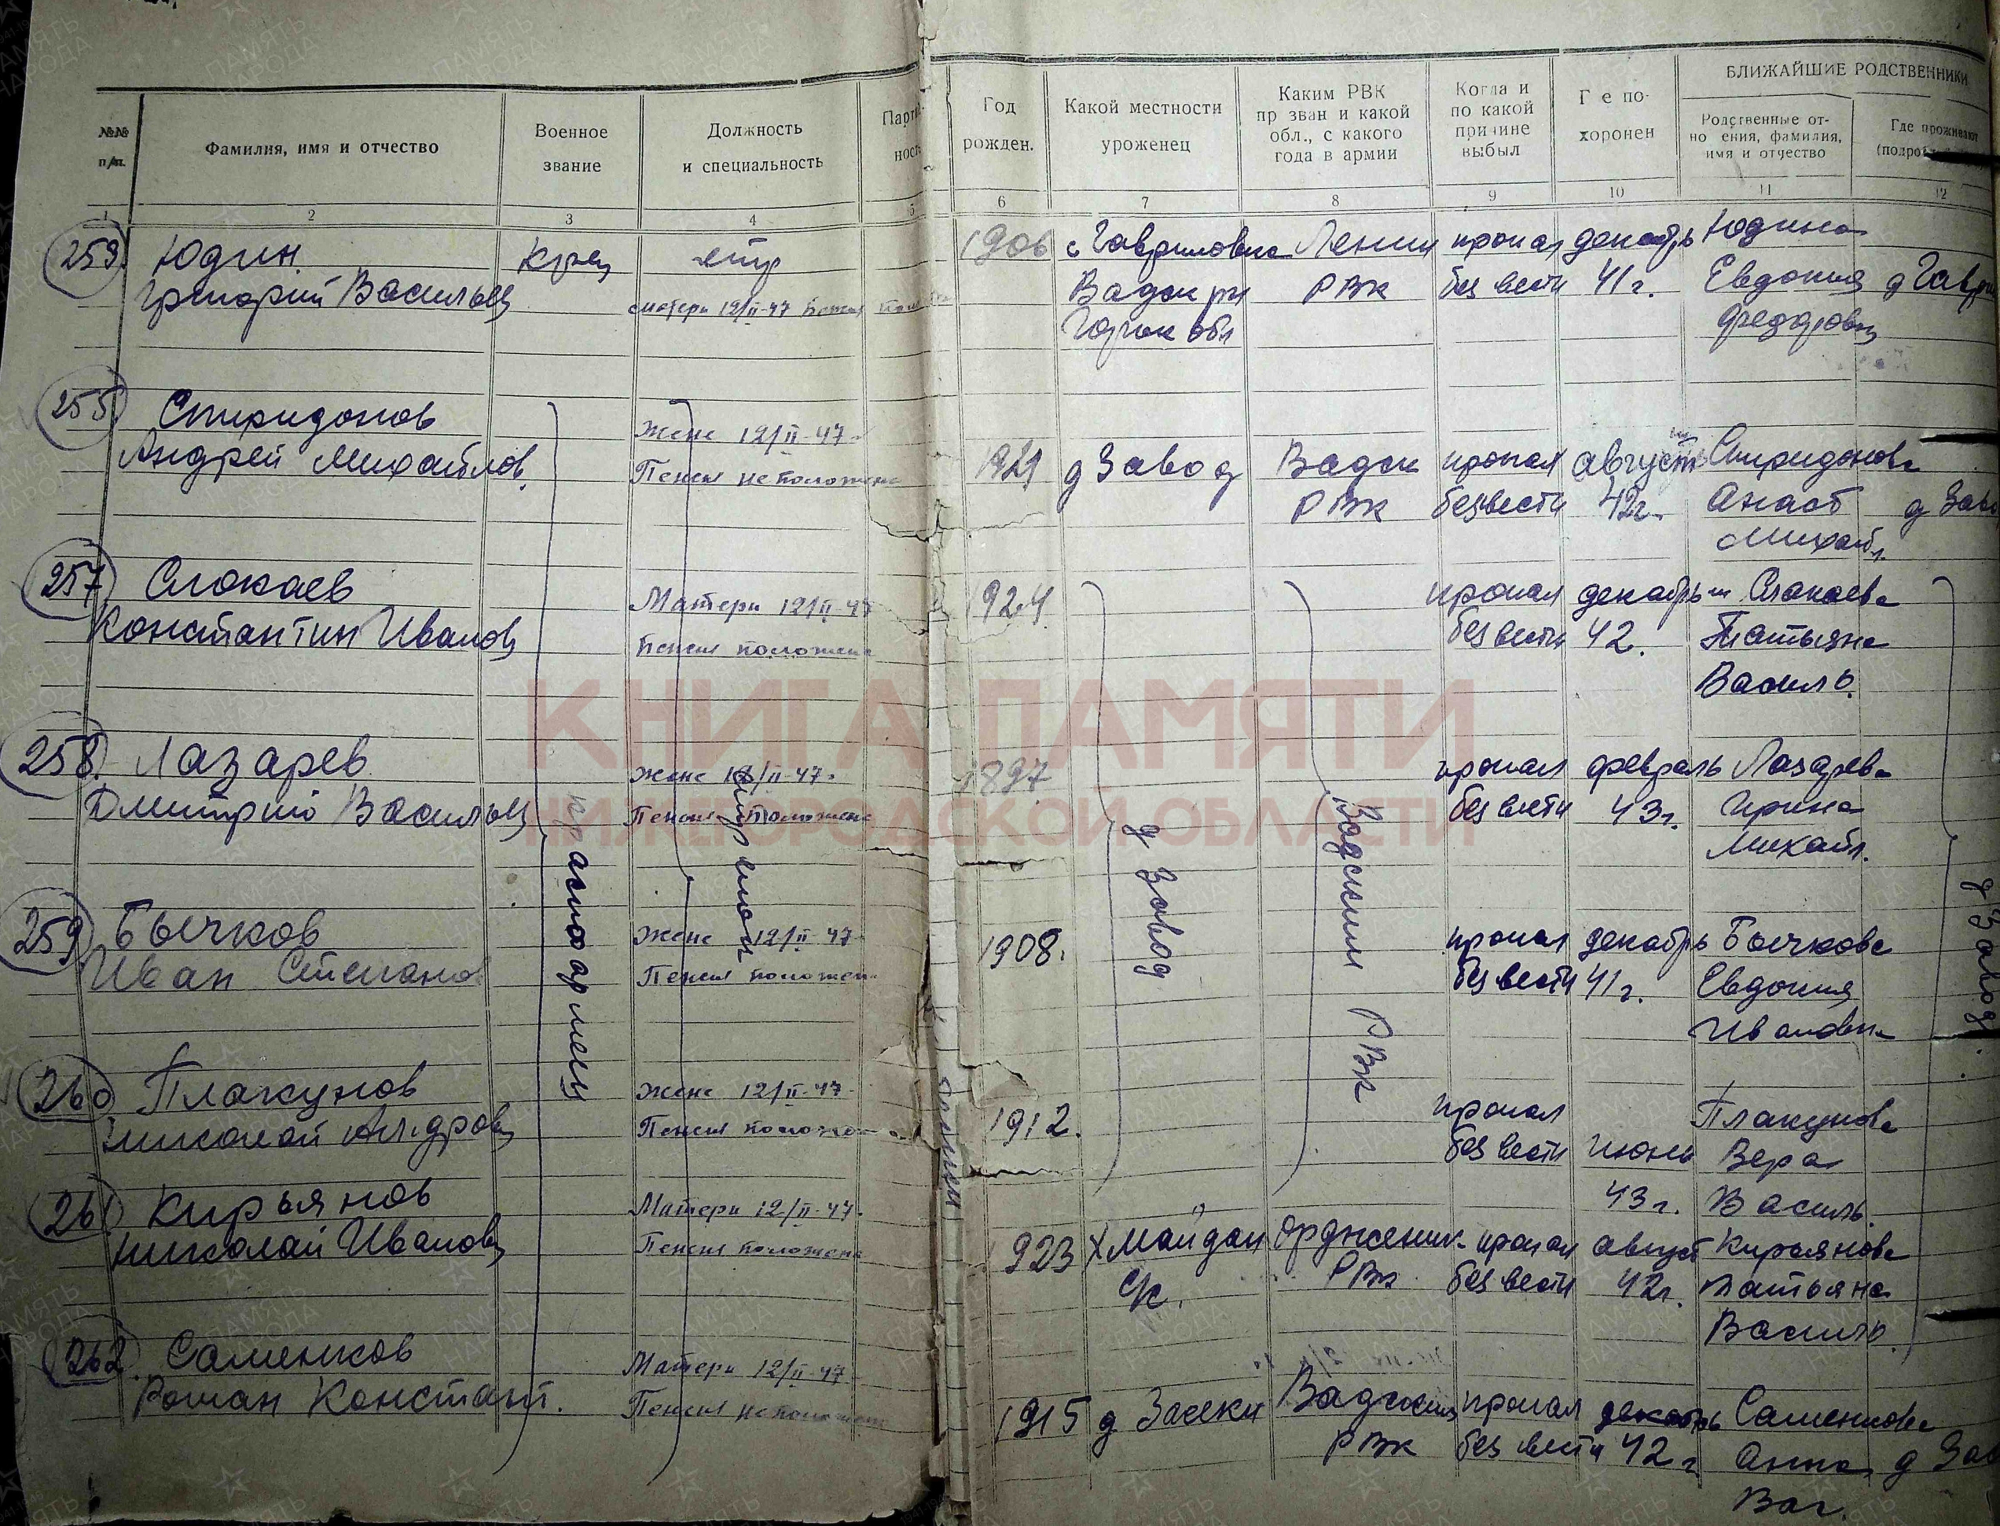 №№ п/п.
Фамилия, имя и отчество
Военное звание
Должность и специальность
Год рожден.
Какой местности уроженец
Каким РВК пр зван и какой обл., с какого года в армии
Когда и по какой причине выбыл
Г е по- хоронен
БЛИЖАЙШИЕ РОДСТВЕННИКИ
Родственные от- но ения, фамилия, имя и отчество
Где проживают
1 2 3 4 5 6 7 8 9 10 11 12
259. Юдин кр-ец стр 1906 с Гавриловка Ленин пропал декабрь Юдина
Григорий Васильев матери 12/II-47 Вадск рн РВк без вести 41 г. Евдокия д Гаври
Горьк обл Федоровн
255 Спиридонов Жене 12/II-47-
Андрей Михайлов. Пенсия не положена 1921 д Завод Вадск пропал август Спиридонова
РВк без вести 42г. Анаст д Заво
Михайл.
257 Слокаев Матери 12/II-47 1924 пропал декабрь Слокаева
Константин Иванов Пенсия положена без вести 42. Татьяна
Василь.
КНИГА ПАМЯТИ
НИЖЕГОРОДСКОЙ ОБЛАСТИ
258. Лазарев Жене 12/II-47. 1897 пропал февраль Лазарева
Дмитрий Васильев Пенсия положена без вести 43г. Ирина
Михайл.
красноармеец
д Завод
Вадским РВк
д Завод.
259. Бычков Жене 12/II-47- 1908. пропал декабрь Бычкова
Иван Степанов Пенсия положена без вести 41 г. Евдокия
Ивановн
260 Плакунов Жене 12/II-47- 1912. пропал Плакунова
Пенсия положена без вести июнь Вера
43г. Василь.
261 Кирьянов Матери 12/II-47-
Николай Иванов Пенсия положена 1923 Х Майдан Орджоник- пропал август Кирьянова
с/с. РВк. без вести 42г. Татьяна
Василь
262. Саменков Матери 12/II-47-
Роман Констант. Пенсия не положена 1915 д Засеки Вадским пропал декабрь Саменкова
РВк без вести 42 г Анна д Зас
Вас.
ПАМЯТЬ НАРОДА